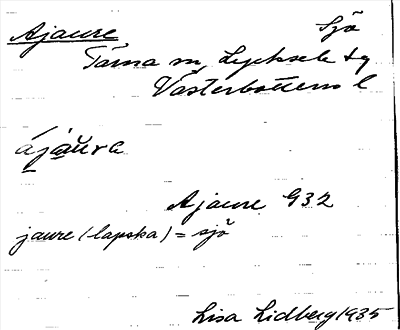 Ajaure Sjö
Tärna sn, Lycksele tg
Västerbottens l
ájau̯ra
Ajaure G32
jaure (lapska) = sjö
Lisa Lidberg 1935